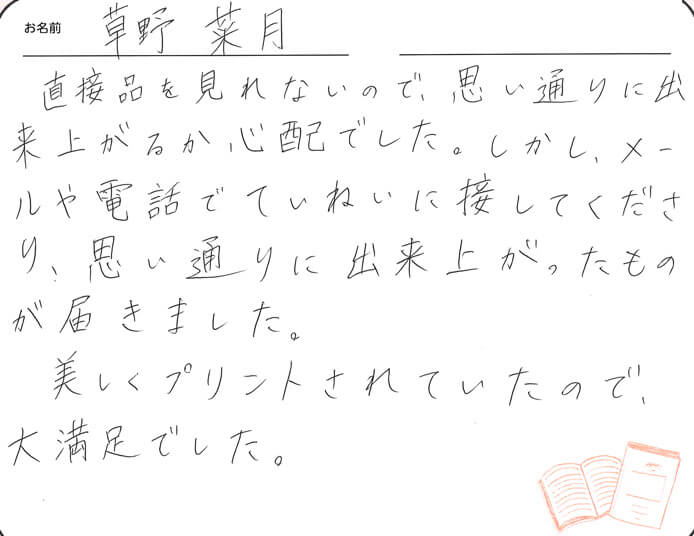 お名前 草野 菜月
直接品を見れないので、思い通りに出
来上がるか心配でした。しかし、メー
ルや電話でていねいに接してくださ
り、思い通りに出来上がったもの
が届きました。
美しくプリントされていたので、
大満足でした。